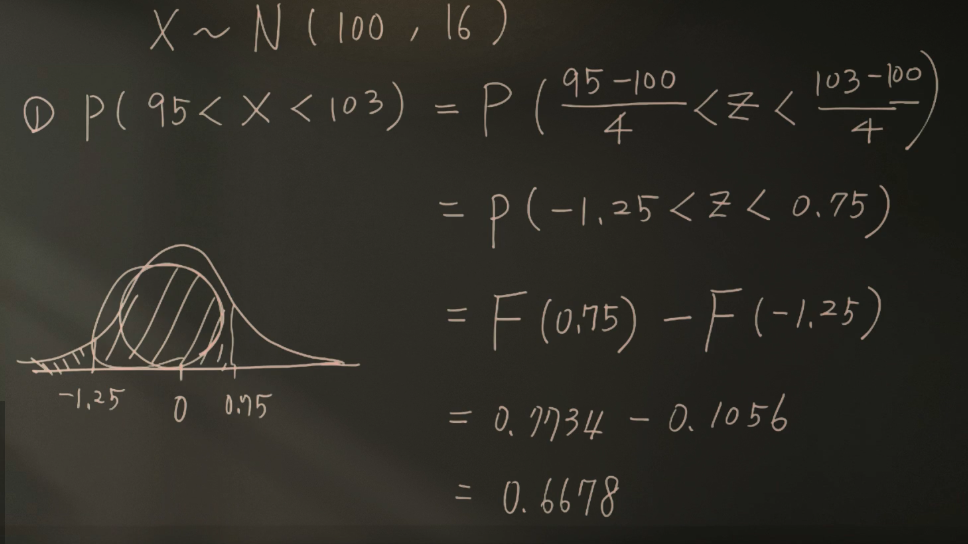 X ~ N ( 100 , 16 )
① P( 95 < X < 103 ) = P ( (95-100)/4 < Z < (103-100)/4 )
= P ( -1.25 < Z < 0.75 )
= F (0.75) - F (-1.25)
= 0.7734 - 0.1056
= 0.6678
-1.25 0 0.75